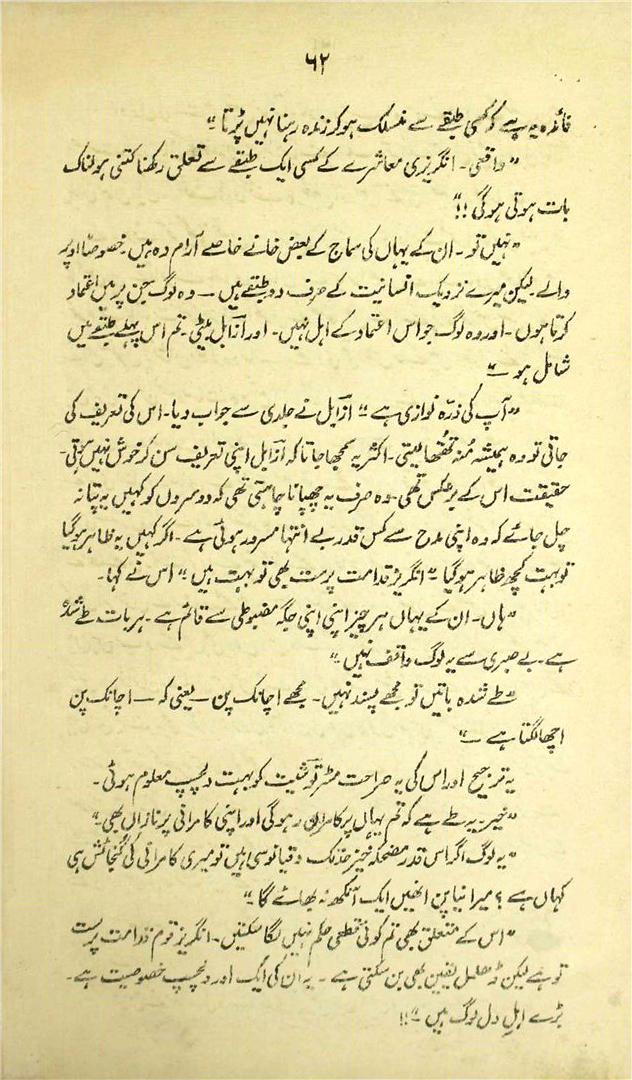 ۶۲
فائدہ یہ ہے کہ کسی طبقے سے منسلک ہو کر زندہ رہنا نہیں پڑتا ۔"
"واقعی ۔ انگریزی معاشرے کے کسی ایک طبقے سے تعلق رکھنا کتنی ہولناک
بات ہوتی ہوگی !!"
"نہیں تو ۔ ان کے یہاں کی سماج کے بعض خانے خاصے آرام دہ ہیں ۔ خصوصاً اوپر
والے ۔ لیکن میرے نزدیک انسانیت کے صرف دو طبقے ہیں — وہ لوگ جن پر میں اعتماد
کرتا ہوں ۔ اور وہ لوگ جو اس اعتماد کے اہل نہیں ۔ اور ازابل بیٹی ۔ تم اس پہلے طبقے میں
شامل ہو —"
"آپ کی ذرّہ نوازی ہے " ازابل نے جلدی سے جواب دیا ۔ اس کی تعریف کی
جاتی تو وہ ہمیشہ مُنہ تھتھا لیتی ۔ اکثر یہ سمجھا جاتا کہ ازابل اپنی تعریف سن کر خوش نہیں ہوتی ۔
حقیقت اس کے برعکس تھی ۔ وہ صرف یہ چھپانا چاہتی تھی کہ دوسروں کو کہیں یہ پتا نہ
چل جائے کہ وہ اپنی مدح سے کس قدر بے انتہا مسرور ہوئی ہے ۔ اگر کہیں یہ ظاہر ہو گیا
تو بہت کچھ ظاہر ہو گیا ۔" انگریز قدامت پرست بھی تو بہت ہیں " اس نے کہا ۔
"ہاں ۔ ان کے یہاں ہر چیز اپنی اپنی جگہ مضبوطی سے قائم ہے ۔ ہر بات طے شدہ
ہے ۔ بے صبری سے یہ لوگ واقف نہیں ۔"
"طے شدہ باتیں تو مجھے پسند نہیں ۔ مجھے اچانک پن — یعنی کہ — اچانک پن
اچھا لگتا ہے —"
یہ ترجیح اور اس کی یہ صراحت مسٹر توشیت کو بہت دلچسپ معلوم ہوئی ۔
"خیر ۔ یہ طے ہے کہ تم یہاں پر کامران رہو گی اور اپنی کامرانی پر نازاں بھی ۔"
"یہ لوگ اگر اس قدر مضحکہ خیز حد تک دقیانوسی ہیں تو میری کامرانی کی گنجائش ہی
کہاں ہے ؟ میرا نیا پن انھیں ایک آنکھ نہ بھائے گا ۔"
"اس کے متعلق بھی تم کوئی قطعی حکم نہیں لگا سکتیں ۔ انگریز قوم قدامت پرست
تو ہے لیکن ڈھلمل یقین بھی بن سکتی ہے ۔ یہ ان کی ایک اور دلچسپ خصوصیت ہے ۔
بڑے اہلِ دل لوگ ہیں ۔"!!